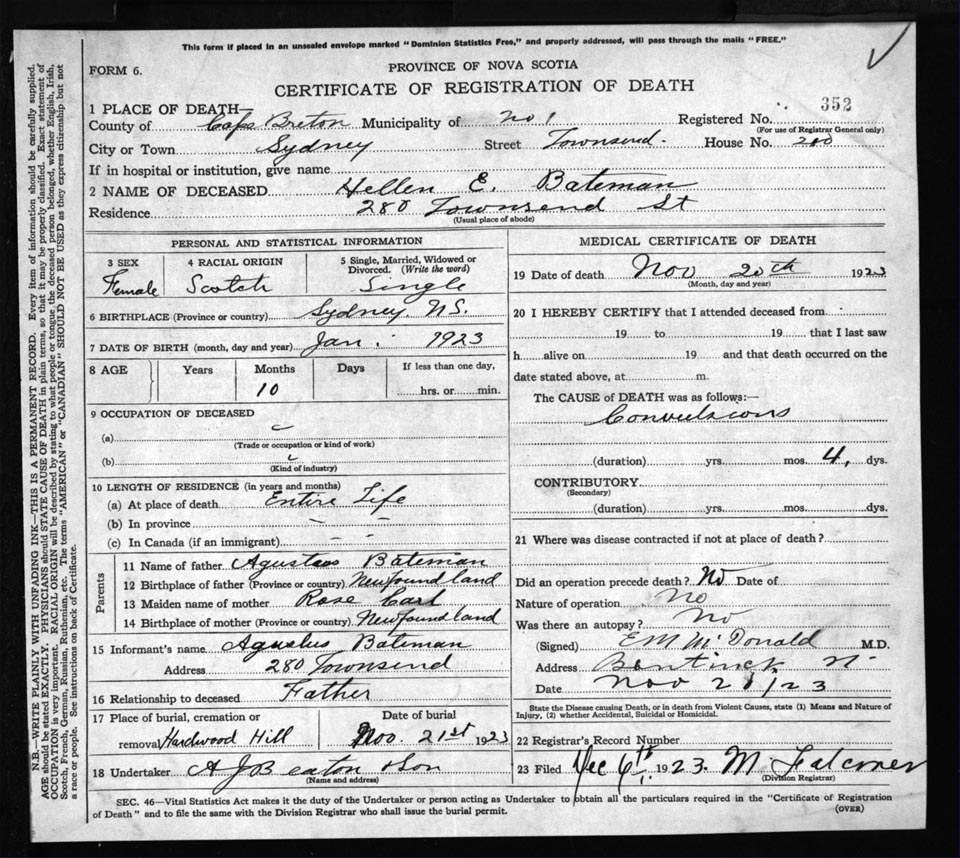 This form if placed in an unsealed envelope marked "Dominion Statistics Free," and properly addressed, will pass through the mails "FREE."
FORM 6.
PROVINCE OF NOVA SCOTIA
CERTIFICATE OF REGISTRATION OF DEATH
352
1 PLACE OF DEATH—
County of Cape Breton Municipality of No 1 Registered No.
(For use of Registrar General only)
City or Town Sydney Street Townsend. House No. 280
If in hospital or institution, give name
2 NAME OF DECEASED Hellen E. Bateman
Residence 280 Townsend St
(Usual place of abode)
PERSONAL AND STATISTICAL INFORMATION
3 SEX 4 RACIAL ORIGIN 5 Single, Married, Widowed or Divorced. (Write the word)
Female Scotch Single
6 BIRTHPLACE (Province or country) Sydney. N.S.
7 DATE OF BIRTH (month, day and year) Jan. 1923
8 AGE Years Months Days If less than one day,
10 hrs. or min.
9 OCCUPATION OF DECEASED
(a)
(Trade or occupation or kind of work)
(b)
(Kind of industry)
10 LENGTH OF RESIDENCE (in years and months)
(a) At place of death Entire Life
(b) In province – –
(c) In Canada (if an immigrant) – –
Parents
11 Name of father Bateman
12 Birthplace of father (Province or country) Newfoundland
13 Maiden name of mother Rose
14 Birthplace of mother (Province or country) Newfoundland
15 Informant's name Bateman
Address 280 Townsend
16 Relationship to deceased Father
17 Place of burial, cremation or Date of burial
removal Hardwood Hill Nov. 21st 1923
18 Undertaker A J Beaton & Son
(Name and address)
MEDICAL CERTIFICATE OF DEATH
19 Date of death Nov 20th 1923
(Month, day and year)
20 I HEREBY CERTIFY that I attended deceased from
19 to 19 that I last saw
h alive on 19 and that death occurred on the
date stated above, at m.
The CAUSE of DEATH was as follows:—
Convulsions
(duration) yrs. mos. 4, dys.
CONTRIBUTORY
(Secondary)
(duration) yrs. mos. dys.
21 Where was disease contracted if not at place of death?
Did an operation precede death? No Date of
Nature of operation No
Was there an autopsy? No
(Signed) E M McDonald M.D.
Address Bentinck
Date Nov 21/23
State the Disease causing Death, or in death from Violent Causes, state (1) Means and Nature of
Injury, (2) whether Accidental, Suicidal or Homicidal.
22 Registrar's Record Number
23 Filed Dec 6th 1923. M. Falconer
(Division Registrar)
SEC. 46—Vital Statistics Act makes it the duty of the Undertaker or person acting as Undertaker to obtain all the particulars required in the "Certificate of Registration
of Death" and to file the same with the Division Registrar who shall issue the burial permit.
(OVER)
N.B.—WRITE PLAINLY WITH UNFADING INK—THIS IS A PERMANENT RECORD. Every item of information should be carefully supplied.
AGE should be stated EXACTLY. PHYSICIANS should STATE CAUSE OF DEATH in plain terms, so that it may be properly classified. Exact statement of
OCCUPATION is very important. RACIAL ORIGIN will be described by stating to what people or tongue the deceased person belonged, whether English, Irish,
Scotch, French, German, Russian, Ruthenian, etc. The terms "AMERICAN" or "CANADIAN" SHOULD NOT BE USED as they express citizenship but not
a race or people. See instructions on back of Certificate.